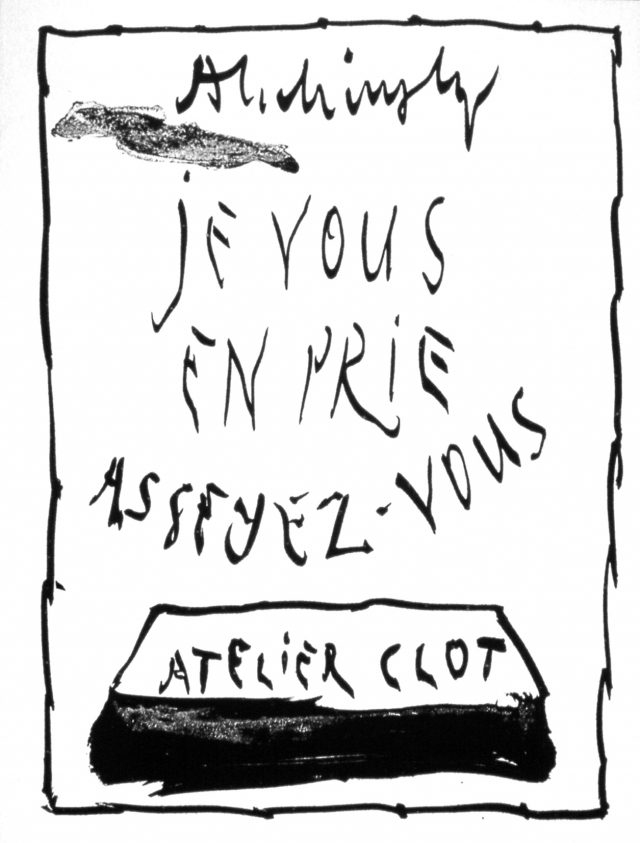 Alechinsky
JE VOUS
EN PRIE
ASSEYEZ-VOUS
ATELIER CLOT